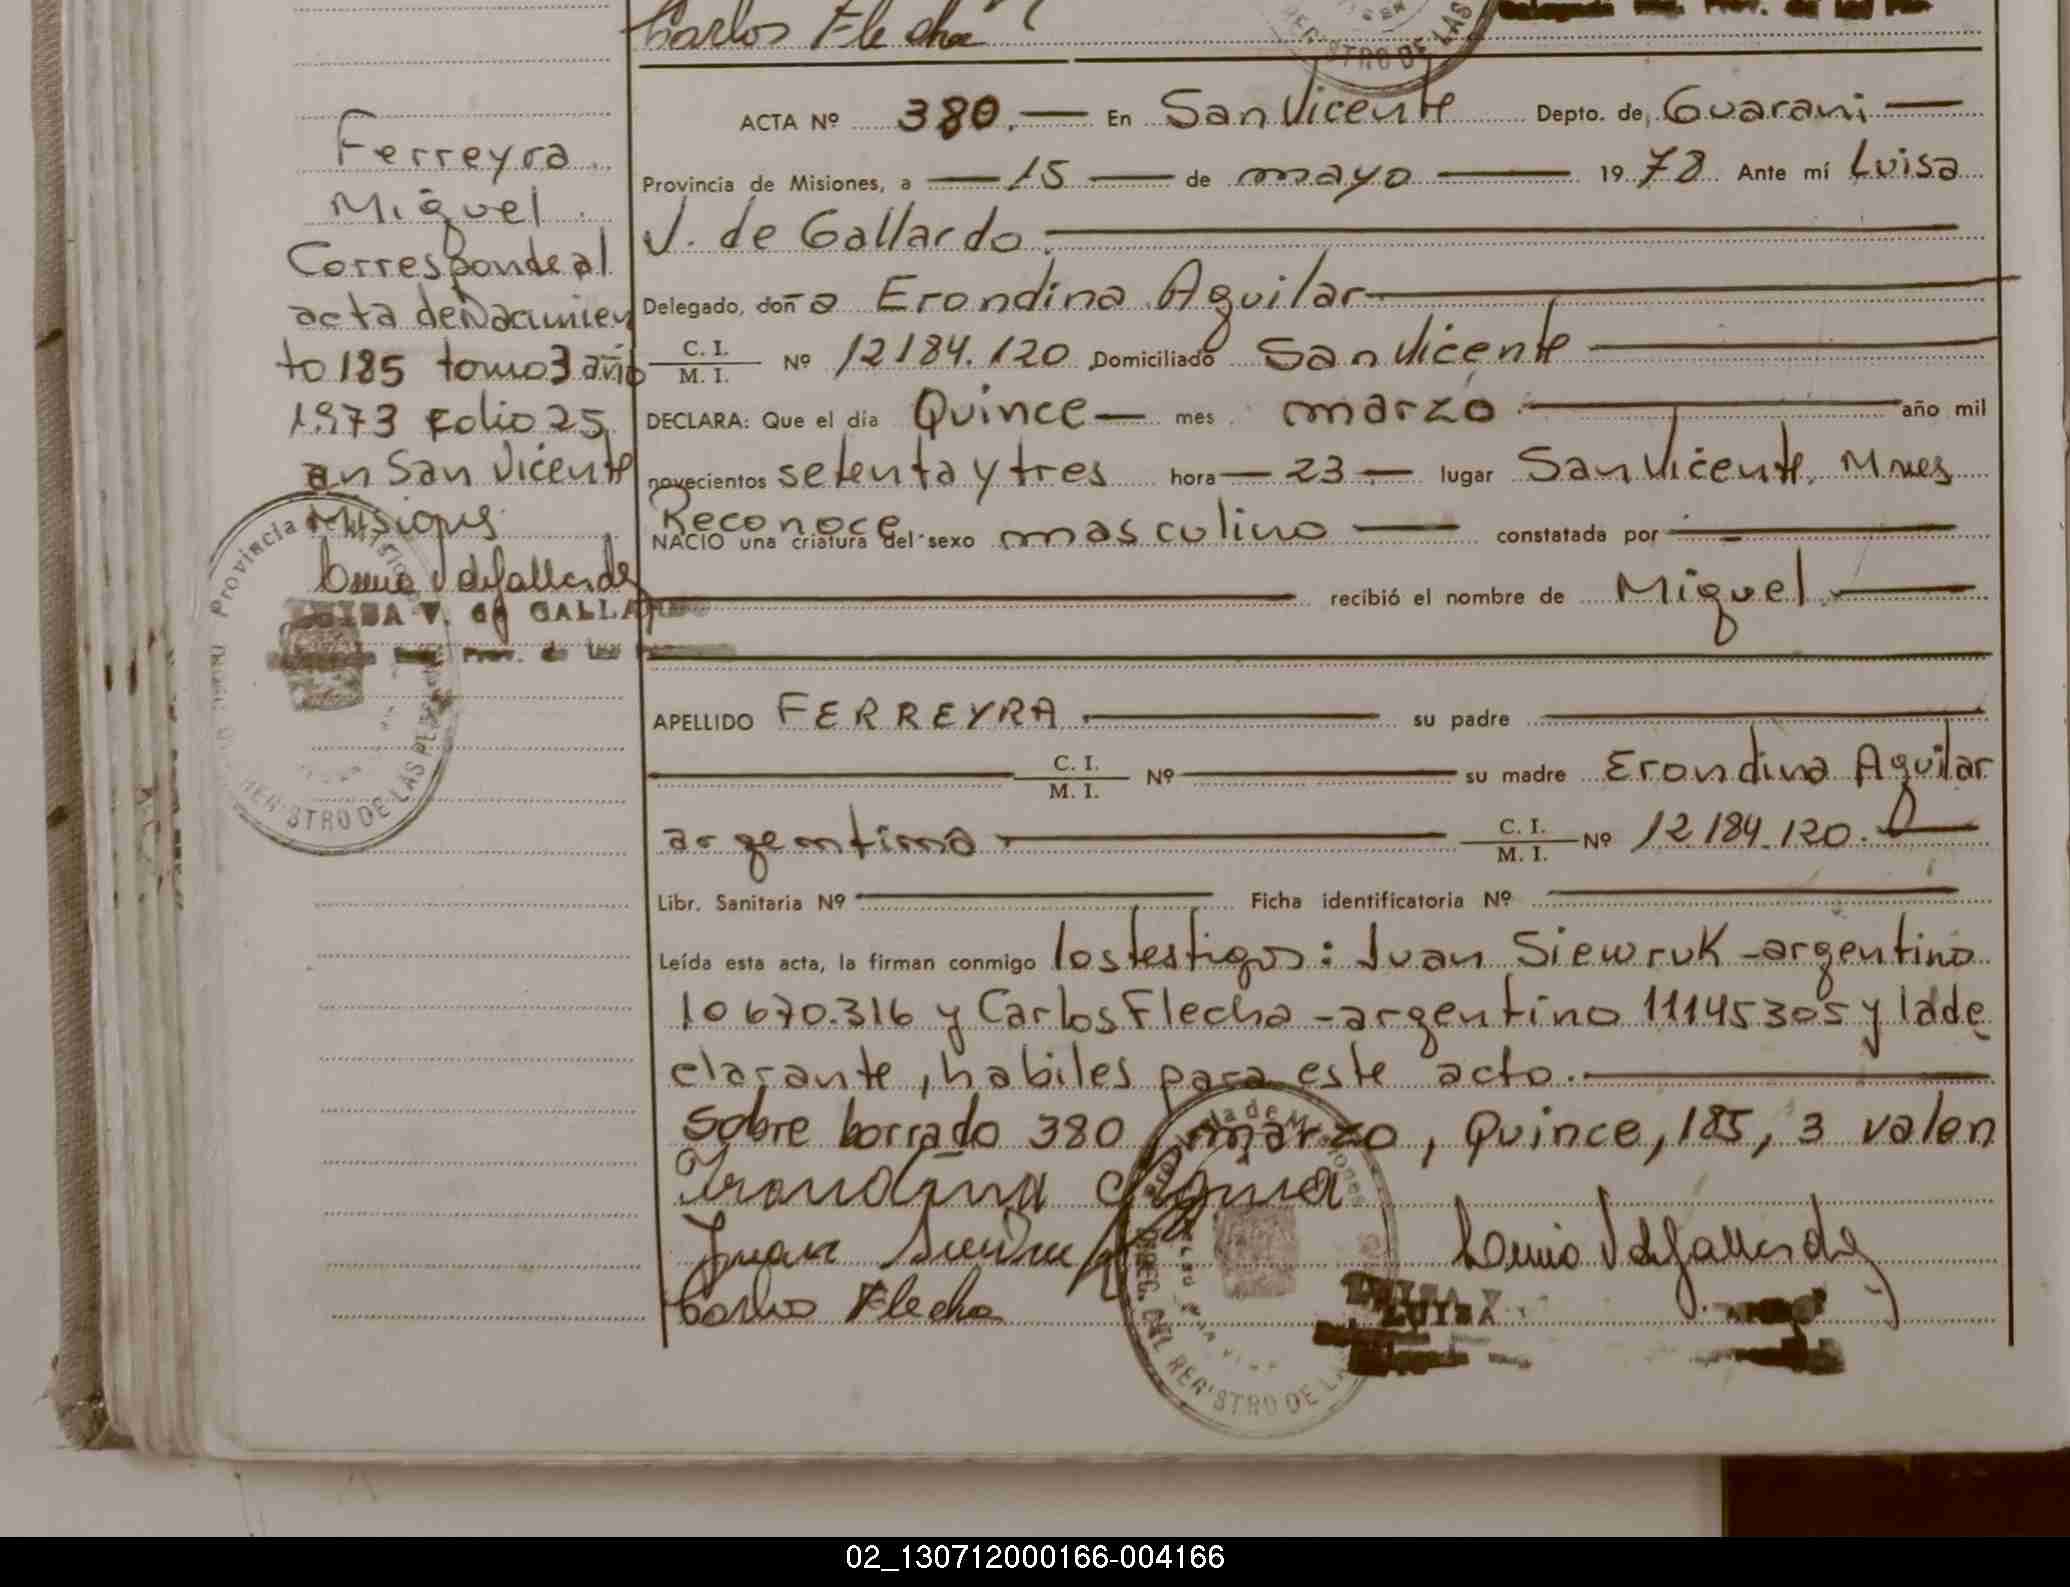 Carlos Flecha
ACTA Nº 380.— En San Vicente Depto. de Guarani —
Provincia de Misiones, a — 15 — de mayo — 1978 Ante mí Luisa
V. de Gallardo.
Delegado, doña Erondina Aguilar
C. I. / M. I. Nº 12184.120 Domiciliado San Vicente
DECLARA: Que el día Quince — mes marzo — año mil
novecientos setenta y tres hora — 23 — lugar San Vicente, Mnes
Reconoce
NACIO una criatura del sexo masculino — constatada por —
recibió el nombre de Miguel —
APELLIDO FERREYRA — su padre —
C. I. / M. I. Nº — su madre Erondina Aguilar
argentina — C. I. / M. I. Nº 12184.120.
Libr. Sanitaria Nº — Ficha identificatoria Nº —
Leída esta acta, la firman conmigo los testigos: Juan Siewruk - argentino
10670.316 y Carlos Flecha - argentino 11145305 y la de
clarante, habiles para este acto.
Sobre borrado 380, marzo, Quince, 185, 3 valen
Juan
Carlos Flecha
Ferreyra
Miguel
Corresponde al
acta de Nacimien
to 185 tomo 3 año
1973 Folio 25
en San Vicente
Misiones
LUISA V. de GALLARDO
Provincia de Misiones
REGISTRO DE LAS PERSONAS
02_130712000166-004166